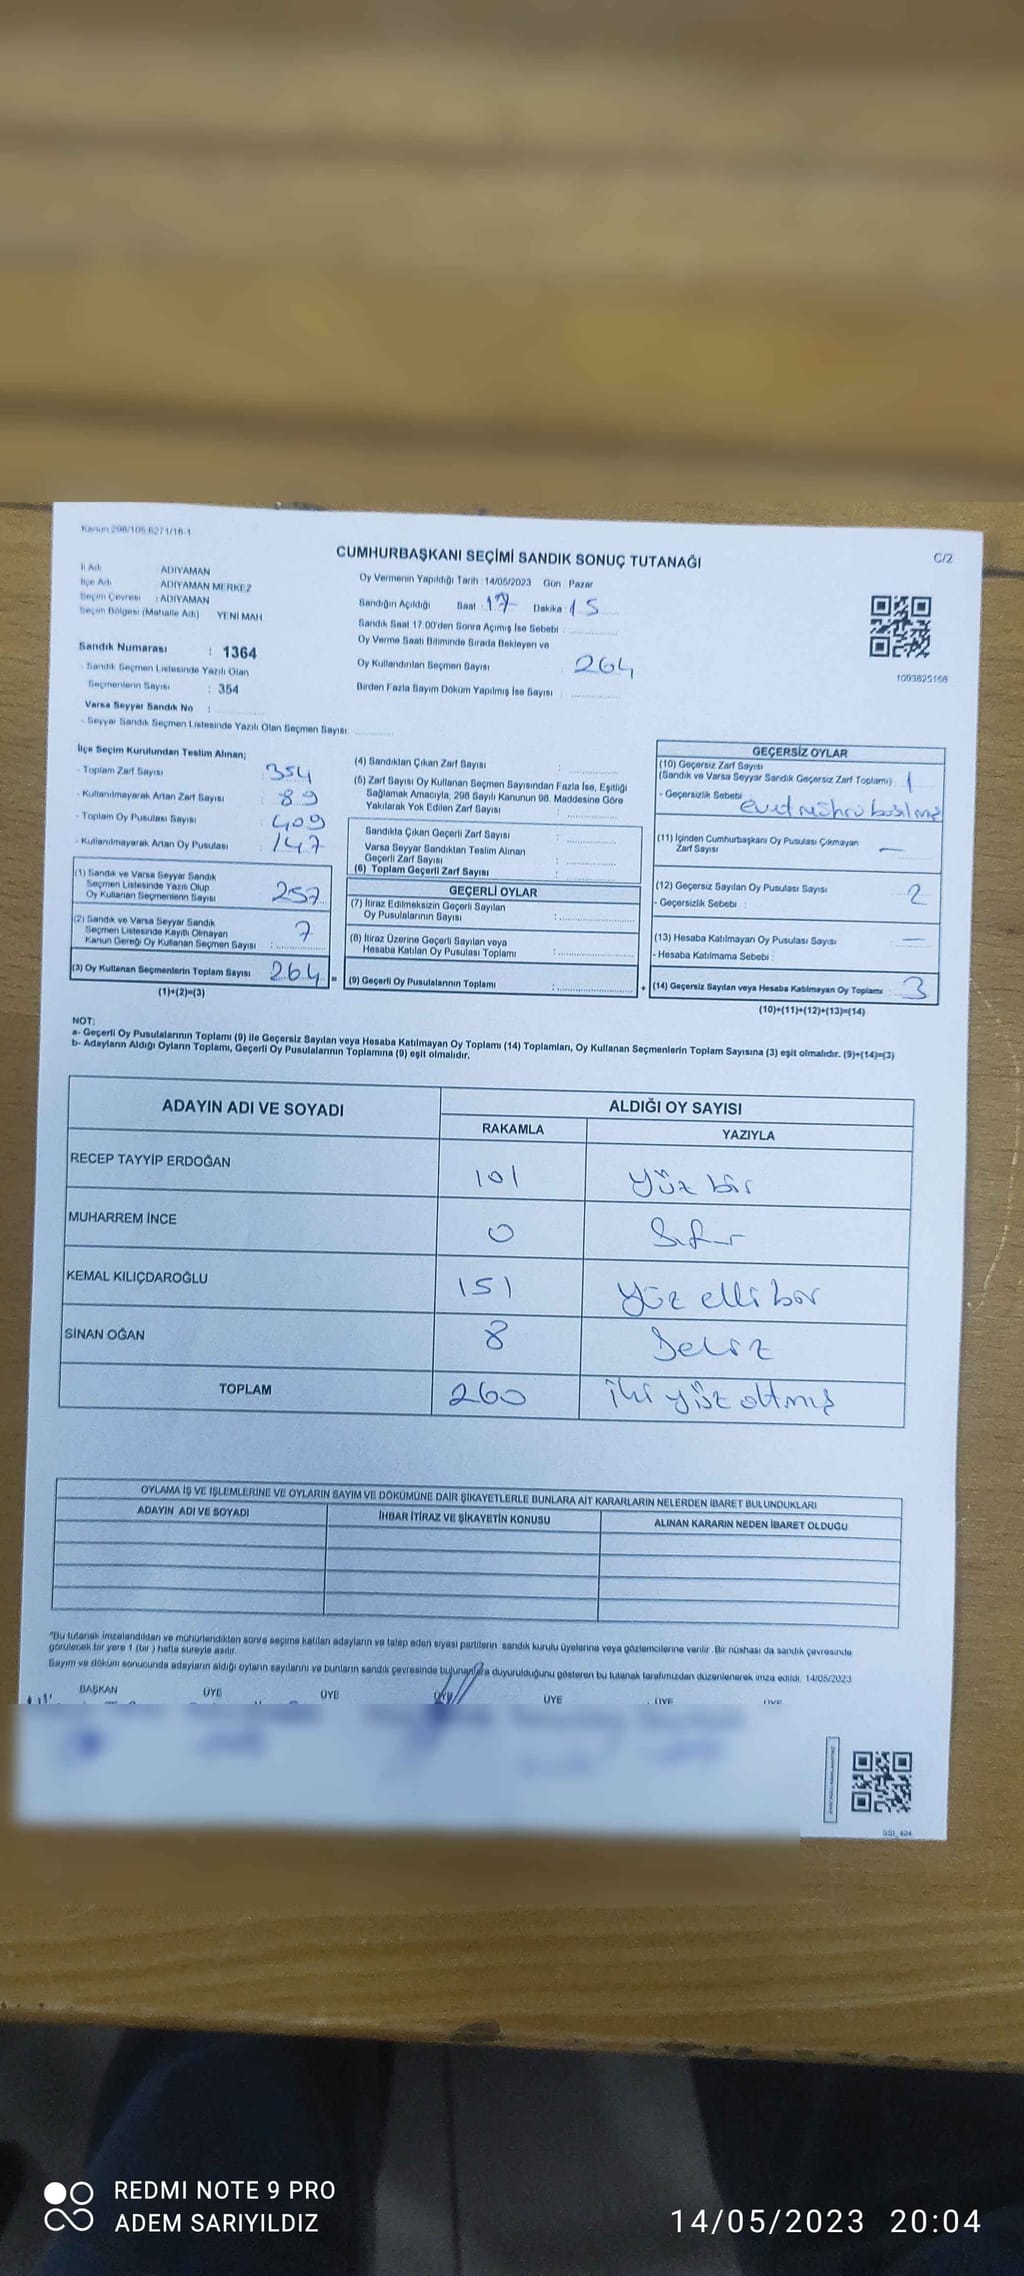 Kanun 298/105 6271/16-1
CUMHURBAŞKANI SEÇİMİ SANDIK SONUÇ TUTANAĞI
C/2
İl Adı : ADIYAMAN
İlçe Adı : ADIYAMAN MERKEZ
Seçim Çevresi : ADIYAMAN
Seçim Bölgesi (Mahalle Adı) YENİ MAH
Sandık Numarası : 1364
- Sandık Seçmen Listesinde Yazılı Olan
Seçmenlerin Sayısı : 354
Varsa Seyyar Sandık No :
- Seyyar Sandık Seçmen Listesinde Yazılı Olan Seçmen Sayısı:
Oy Vermenin Yapıldığı Tarih : 14/05/2023 Gün Pazar
Sandığın Açıldığı Saat : 17 Dakika : 15
Sandık Saat 17.00'den Sonra Açımış İse Sebebi :
Oy Verme Saati Bitiminde Sırada Bekleyen ve
Oy Kullandırılan Seçmen Sayısı 264
Birden Fazla Sayım Döküm Yapılmış İse Sayısı :
1093825168
İlçe Seçim Kurulundan Teslim Alınan;
- Toplam Zarf Sayısı 354
- Kullanılmayarak Artan Zarf Sayısı : 89
- Toplam Oy Pusulası Sayısı : 409
- Kullanılmayarak Artan Oy Pusulası : 147
(1) Sandık ve Varsa Seyyar Sandık
Seçmen Listesinde Yazılı Olup
Oy Kullanan Seçmenlerin Sayısı : 257
(2) Sandık ve Varsa Seyyar Sandık
Seçmen Listesinde Kayıtlı Olmayan
Kanun Gereği Oy Kullanan Seçmen Sayısı : 7
(3) Oy Kullanan Seçmenlerin Toplam Sayısı 264 =
(1)+(2)=(3)
(4) Sandıktan Çıkan Zarf Sayısı :
(5) Zarf Sayısı Oy Kullanan Seçmen Sayısından Fazla İse, Eşitliği
Sağlamak Amacıyla, 298 Sayılı Kanunun 98. Maddesine Göre
Yakılarak Yok Edilen Zarf Sayısı :
Sandıkta Çıkan Geçerli Zarf Sayısı :
Varsa Seyyar Sandıktan Teslim Alınan
Geçerli Zarf Sayısı :
(6) Toplam Geçerli Zarf Sayısı :
GEÇERLİ OYLAR
(7) İtiraz Edilmeksizin Geçerli Sayılan
Oy Pusulalarının Sayısı :
(8) İtiraz Üzerine Geçerli Sayılan veya
Hesaba Katılan Oy Pusulası Toplamı :
(9) Geçerli Oy Pusulalarının Toplamı : +
GEÇERSİZ OYLAR
(10) Geçersiz Zarf Sayısı
(Sandık ve Varsa Seyyar Sandık Geçersiz Zarf Toplamı) : 1
- Geçersizlik Sebebi evet mührü
(11) İçinden Cumhurbaşkanı Oy Pusulası Çıkmayan
Zarf Sayısı : —
(12) Geçersiz Sayılan Oy Pusulası Sayısı : 2
- Geçersizlik Sebebi :
(13) Hesaba Katılmayan Oy Pusulası Sayısı : —
- Hesaba Katılmama Sebebi :
(14) Geçersiz Sayılan veya Hesaba Katılmayan Oy Toplamı : 3
(10)+(11)+(12)+(13)=(14)
NOT:
a- Geçerli Oy Pusulalarının Toplamı (9) ile Geçersiz Sayılan veya Hesaba Katılmayan Oy Toplamı (14) Toplamları, Oy Kullanan Seçmenlerin Toplam Sayısına (3) eşit olmalıdır. (9)+(14)=(3)
b- Adayların Aldığı Oyların Toplamı, Geçerli Oy Pusulalarının Toplamına (9) eşit olmalıdır.
ADAYIN ADI VE SOYADI ALDIĞI OY SAYISI
RAKAMLA YAZIYLA
RECEP TAYYİP ERDOĞAN 101 yüz bir
MUHARREM İNCE 0 Sıfır
KEMAL KILIÇDAROĞLU 151 yüz elli bir
SİNAN OĞAN 8 Sekiz
TOPLAM 260 iki yüz altmış
OYLAMA İŞ VE İŞLEMLERİNE VE OYLARIN SAYIM VE DÖKÜMÜNE DAİR ŞİKAYETLERLE BUNLARA AİT KARARLARIN NELERDEN İBARET BULUNDUKLARI
ADAYIN ADI VE SOYADI İHBAR İTİRAZ VE ŞİKAYETİN KONUSU ALINAN KARARIN NEDEN İBARET OLDUĞU
*Bu tutanak imzalandıktan ve mühürlendikten sonra seçime katılan adayların ve talep eden siyasi partilerin sandık kurulu üyelerine veya gözlemcilerine verilir. Bir nüshası da sandık çevresinde
görülecek bir yere 1 (bir ) hafta süreyle asılır.
Sayım ve döküm sonucunda adayların aldığı oyların sayılarını ve bunların sandık çevresinde bulunanlara duyurulduğunu gösteren bu tutanak tarafımızdan düzenlenerek imza edildi. 14/05/2023
BAŞKAN ÜYE ÜYE ÜYE ÜYE ÜYE ÜYE
REDMI NOTE 9 PRO
ADEM SARIYILDIZ
14/05/2023 20:04